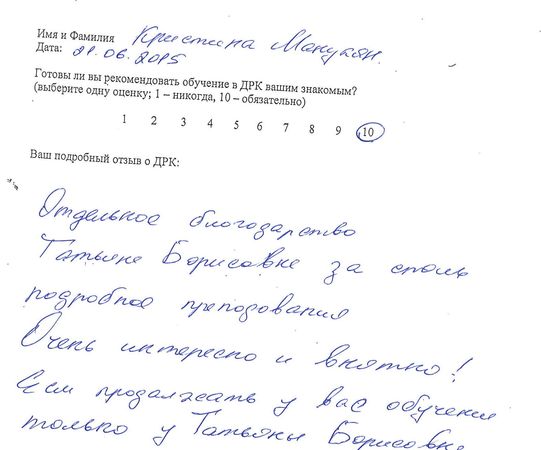 Имя и Фамилия Кристина Манукян.
Дата: 21.06.2015
Готовы ли вы рекомендовать обучение в ДРК вашим знакомым?
(выберите одну оценку; 1 – никогда, 10 – обязательно)
1 2 3 4 5 6 7 8 9 10
Ваш подробный отзыв о ДРК:
Отдельное благодарство
Татьяне Борисовне за столь
подробное преподования
Очень интересно и внятно!
Если продалжать у вас обучение
только у Татьяны Борисовне